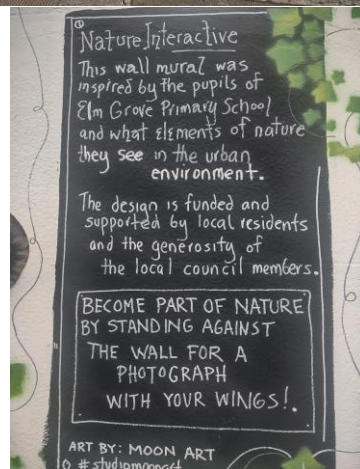 Nature Interactive
This wall mural was
inspired by the pupils of
Elm Grove Primary School
and what elements of nature
they see in the urban
environment.
The design is funded and
supported by local residents
and the generosity of
the local council members.
BECOME PART OF NATURE
BY STANDING AGAINST
THE WALL FOR A
PHOTOGRAPH
WITH YOUR WINGS!.
ART BY: MOON ART
# studiomoonart